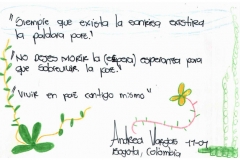 "Siempre que exista la sonrisa existirá
la palabra paz."
"NO DEJES MORIR la (espera) esperanza para
que sobrevivir la paz."
"Vivir en paz contigo mismo"
Andrea Vargas 17-04
Bogotá, Colombia